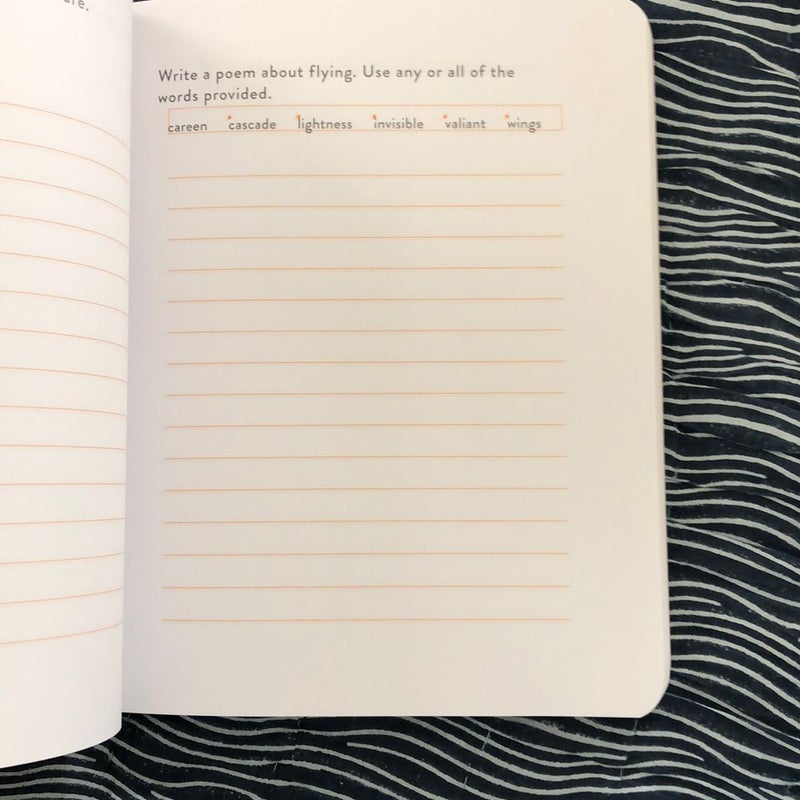 Write a poem about flying. Use any or all of the
words provided.
careen cascade lightness invisible valiant wings